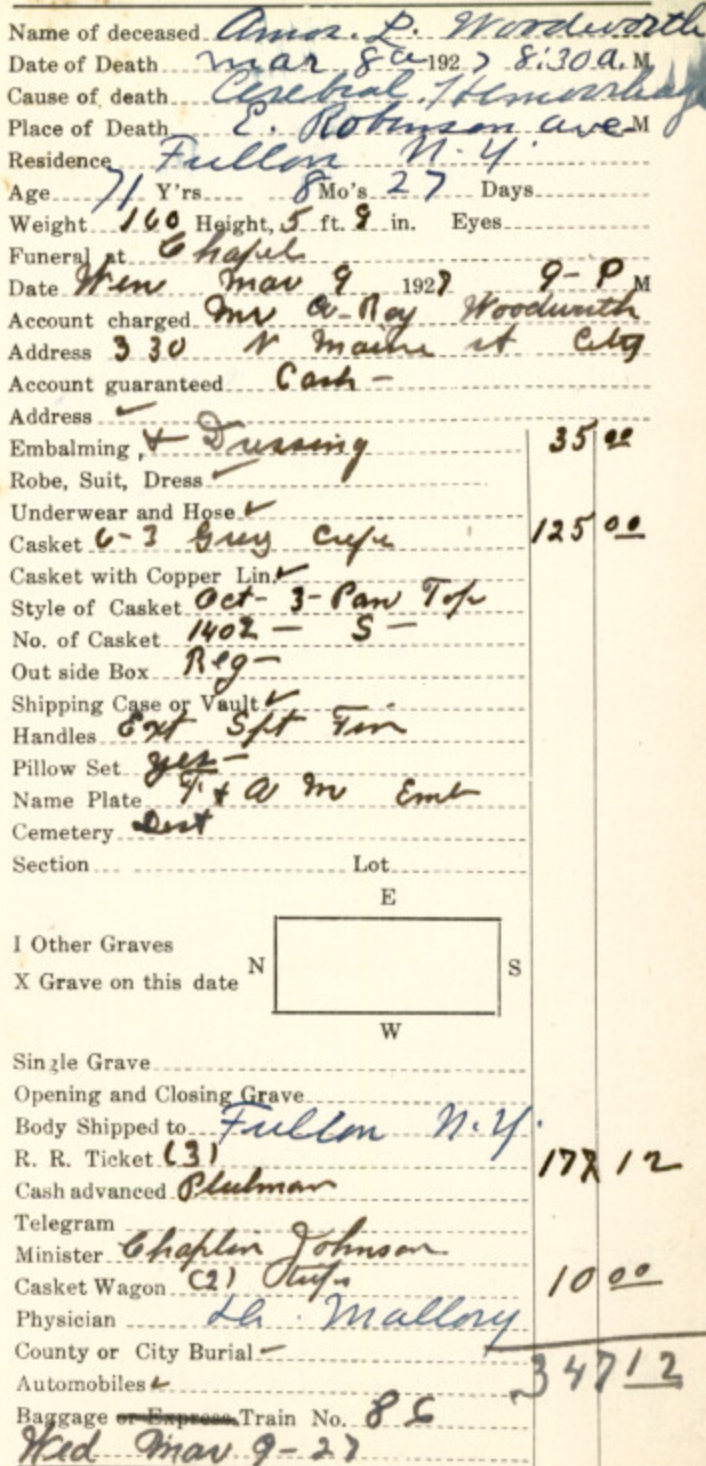 Name of deceased Amos. L. Woodworth
Date of Death Mar 8th 1927 8:30 A. M
Cause of death Cerebral Hemorrhage
Place of Death E. Robinson ave M
Residence Fulton N.Y.
Age 71 Y'rs 8 Mo's 27 Days
Weight 160 Height, 5 ft. 9 in. Eyes
Funeral at Chapel
Date Wen Mar 9 1927 9- P M
Account charged Mr A-Roy Woodworth
Address 330 N Maine st City
Account guaranteed Cash -
Address ✓
Embalming, + Dressing 35 00
Robe, Suit, Dress ✓
Underwear and Hose ✓
Casket 6-3 Grey Crepe 125 00
Casket with Copper Lin. ✓
Style of Casket Oct- 3-Pan Top
No. of Casket 1402 - S -
Out side Box Reg -
Shipping Case or Vault ✓
Handles Ext
Pillow Set yes -
Name Plate F + A M Emb
Cemetery
Section Lot
E
I Other Graves
N S
X Grave on this date
W
Single Grave
Opening and Closing Grave
Body Shipped to Fulton N.Y.
R. R. Ticket (3) 177 12
Cash advanced Pullman
Telegram
Minister Chaplin Johnson
Casket Wagon (2) Trips 10 00
Physician Dr. Mallory
County or City Burial -
347 12
Automobiles ✓
Baggage or Express Train No. 86
Wed Mar 9-27